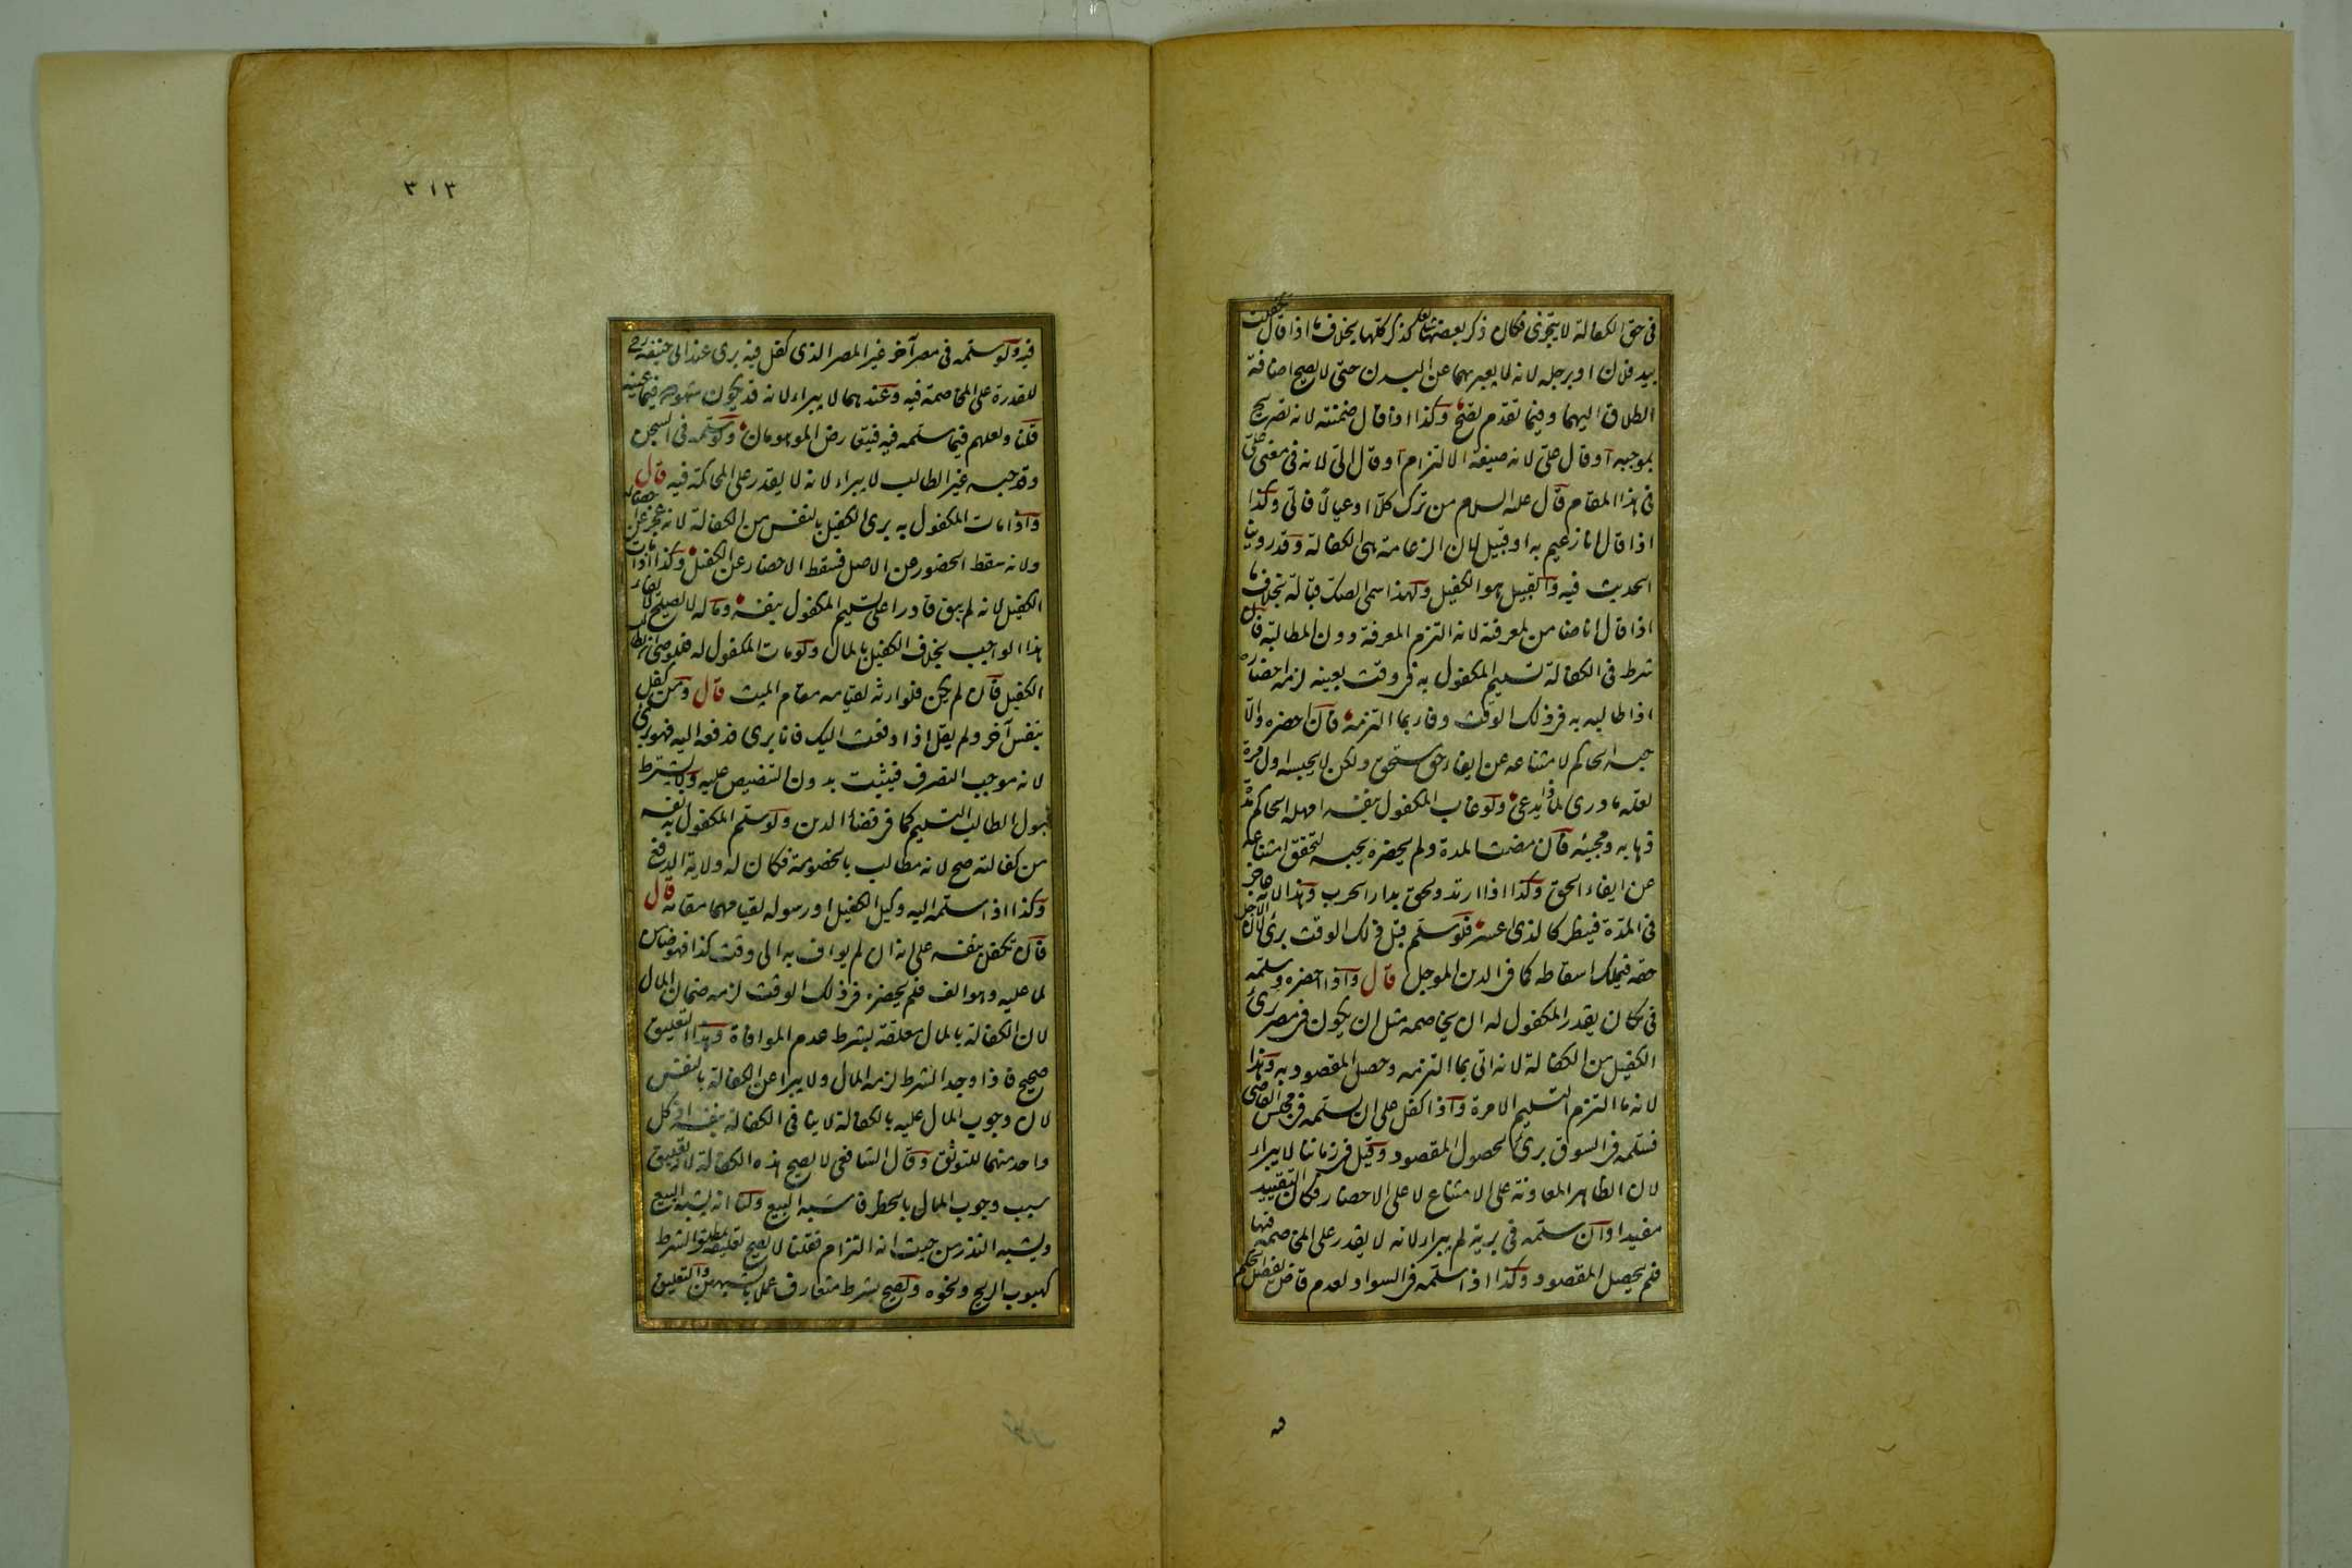 فى حق الكفالة لا يتجزى فكان ذكر بعضها شايعا كذكر كلها بخلاف ما اذا قال تكفلت
بيد فلان او برجله لانه لا يعبر بهما عن البدن حتى لا يصح اضافة
الطلاق اليهما وفيما تقدم يصح وكذا اذا قال ضمنته لانه تصريح
بموجبه او قال على لانه صيغة الالتزام او قال الى لانه فى معنى على
فى هذا المقام قال عليه السلام من ترك كلا او عيالا فالى وكذا
اذا قال انا زعيم به او قبيل لان الزعامة هى الكفالة وقد روينا
الحديث فيه والقبيل هو الكفيل ولهذا سمى الصك قبالة بخلاف ما
اذا قال انا ضامن لمعرفته لانه التزم المعرفة دون المطالبة قال
شرط فى الكفالة تسليم المكفول به فى وقت بعينه لزمه احضاره
اذا طالبه به فى ذلك الوقت وفاء بما التزمه فان احضره والا
حبسه الحاكم لامتناعه عن ايفاء حق مستحق ولكن لا يحبسه اول مرة
لعله ما درى لماذا يدعى ولو غاب المكفول بنفسه امهله الحاكم مدة
ذهابه ومجيئه فان مضت المدة ولم يحضره يحبسه لتحقق امتناعه
عن ايفاء الحق وكذا اذا ارتد ولحق بدار الحرب وهذا لانه عاجز
فى المدة فينظر كالذى اعسر فلو سلمه قبل ذلك الوقت برئ لان الاجل
حقه فيملك اسقاطه كما فى الدين الموجل قال واذا احضره وسلمه
فى مكان يقدر المكفول له ان يخاصمه مثل ان يكون فى مصر برئ
الكفيل من الكفالة لانه اتى بما التزمه وحصل المقصود به وهذا
لانه ما التزم التسليم الا مرة واذا كفل على ان يسلمه فى مجلس القاضى
فسلمه فى السوق برئ لحصول المقصود وقيل فى زماننا لا يبراء
لان الظاهر المعاونة على الامتناع لا على الاحضار فكان التقييد
مفيدا وان سلمه فى برية لم يبراء لانه لا يقدر على المخاصمة فيها
فلم يحصل المقصود وكذا اذا سلمه فى السواد لعدم قاض يفصل الحكم
فيه
٣١٣
فيه ولو سلمه فى مصر آخر غير المصر الذى كفل فيه برى عند ابى حنيفة رح
للقدرة على المخاصمة فيه وعندهما لا يبراء لانه قد يكون شهوده فيما عينه
قلنا ولعلهم فيما سلمه فيه فيتعارض الموهومان ولو سلمه فى السجن
وقد حبسه غير الطالب لا يبراء لانه لا يقدر على المحاكمة فيه قال
واذا مات المكفول به برى الكفيل بالنفس من الكفالة لانه عجز عن احضاره
ولانه سقط الحضور عن الاصل فسقط الاحضار عن الكفيل وكذا اذا مات
الكفيل لانه لم يبق قادرا على تسليم المكفول بنفسه وماله لا يصلح لايفاء
هذا الواجب بخلاف الكفيل بالمال ولو مات المكفول له فللوصى ان يطالب
الكفيل فان لم يكن فلوارثه لقيامه مقام الميت قال ومن كفل
بنفس آخر ولم يقل اذا دفعت اليك فانا برى فدفعه اليه فهو برى
لانه موجب التصرف فيثبت بدون التنصيص عليه ولا يشترط
قبول الطالب التسليم كما فى قضاء الدين ولو سلم المكفول به نفسه
من كفالته صح لانه مطالب بالخصومة فكان له ولاية الدفع
وكذا اذا سلمه اليه وكيل الكفيل او رسوله لقيامهما مقامه قال
فان تكفل بنفسه على انه ان لم يواف به الى وقت كذا فهو ضامن
لما عليه وهو الف فلم يحضره فى ذلك الوقت لزمه ضمان المال
لان الكفالة بالمال معلقة بشرط عدم الموافاة وهذا التعليق
صحيح فاذا وجد الشرط لزمه المال ولا يبرا عن الكفالة بالنفس
لان وجوب المال عليه بالكفالة لا ينافى الكفالة بنفسه اذ كل
واحد منهما للتوثق وقال الشافعى لا يصح هذه الكفالة لانه تعليق
سبب وجوب المال بالخطر فاشبه البيع ولنا انه يشبه البيع
ويشبه النذر من حيث انه التزام فقلنا لا يصح تعليقه بمطلق الشرط
كهبوب الريح ونحوه ويصح بشرط متعارف عملا بالشبهين والتعليق